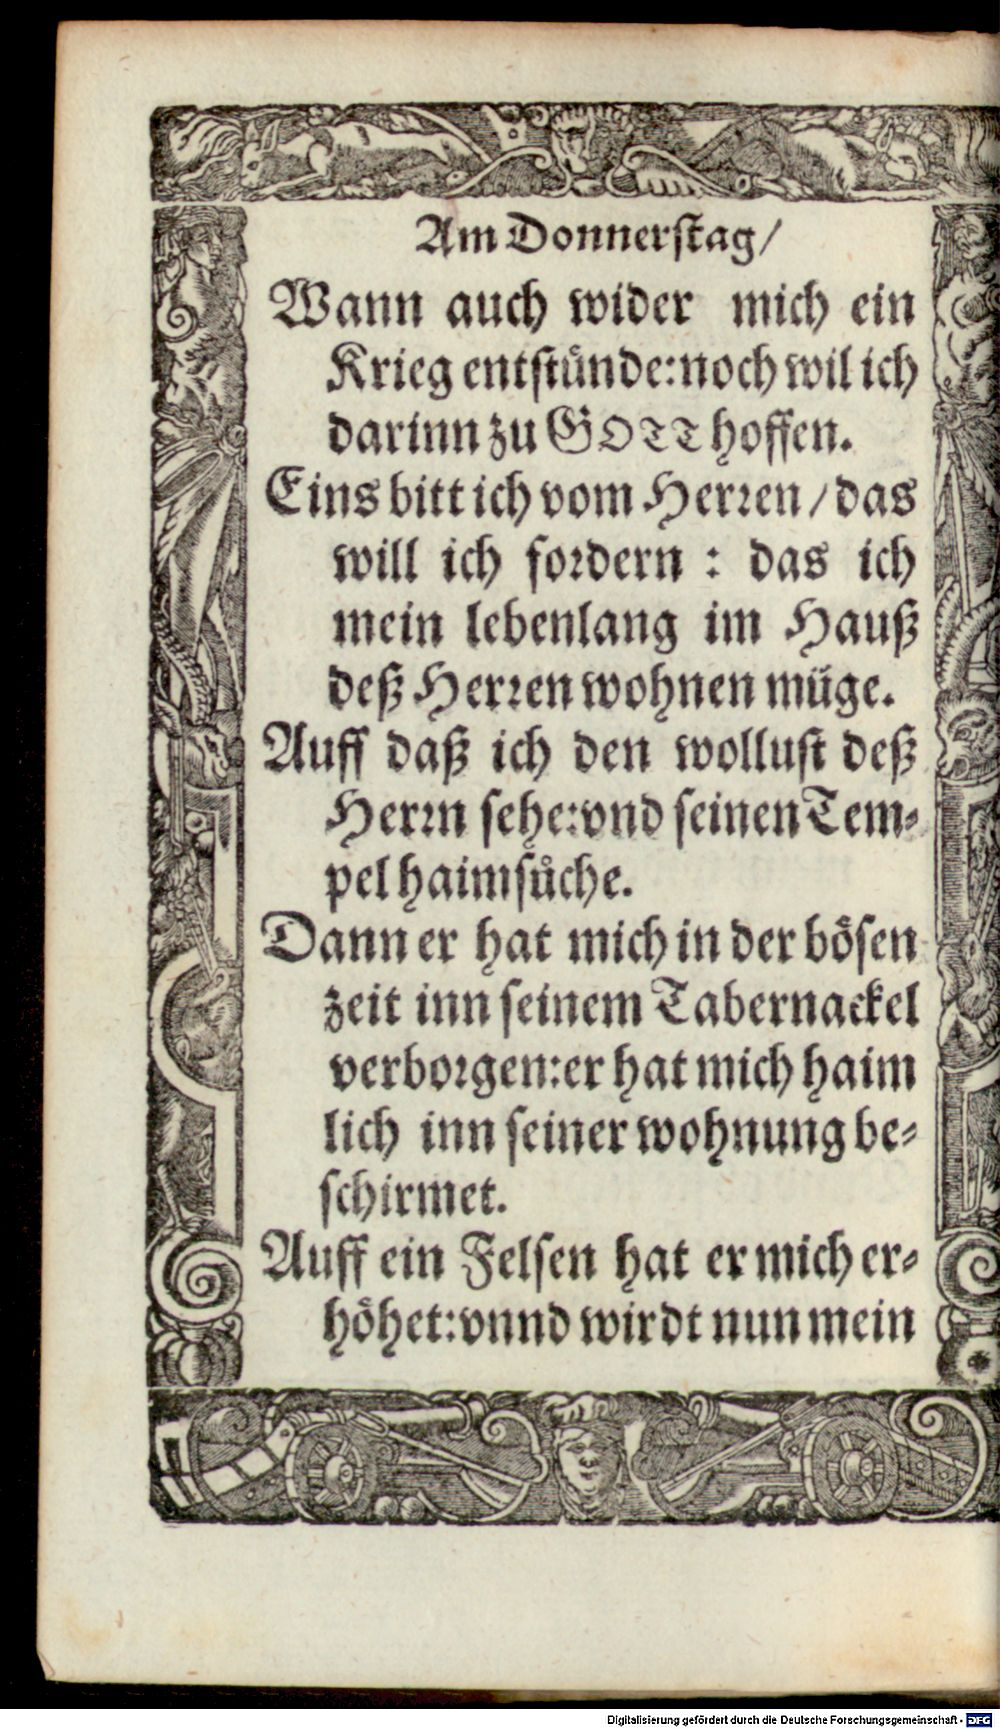 Am Donnerstag/
Wann auch wider mich ein
Krieg entstünde: noch wil ich
darinn zu GOTT hoffen.
Eins bitt ich vom Herren/ das
will ich fordern : das ich
mein lebenlang im Hauß
deß Herren wohnen müge.
Auff daß ich den wollust deß
Herrn sehe: vnd seinen Tem-
pel haimsůche.
Dann er hat mich in der bösen
zeit inn seinem Tabernackel
verborgen: er hat mich haim
lich inn seiner wohnung be-
schirmet.
Auff ein Felsen hat er mich er-
höhet: vnnd wirdt nun mein
Digitalisierung gefördert durch die Deutsche Forschungsgemeinschaft - DFG